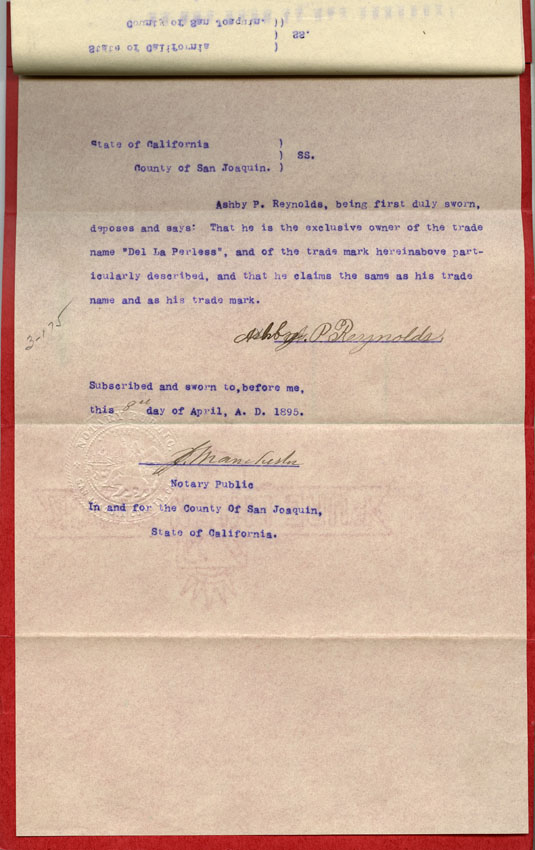 State of California )
) SS.
County of San Joaquin. )
State of California )
) SS.
County of San Joaquin. )
Ashby P. Reynolds, being first duly sworn,
deposes and says: That he is the exclusive owner of the trade
name "Del La Perless", and of the trade mark hereinabove part-
icularly described, and that he claims the same as his trade
name and as his trade mark.
Ashby P. Reynolds
Subscribed and sworn to, before me,
this 8th day of April, A. D. 1895.
J. Manchester
Notary Public
In and for the County Of San Joaquin,
State of California.